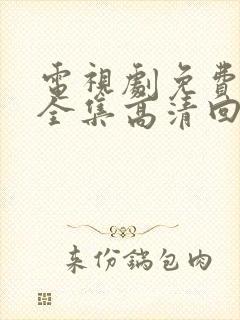 電視劇免費
全集高清回
来份鍋包肉